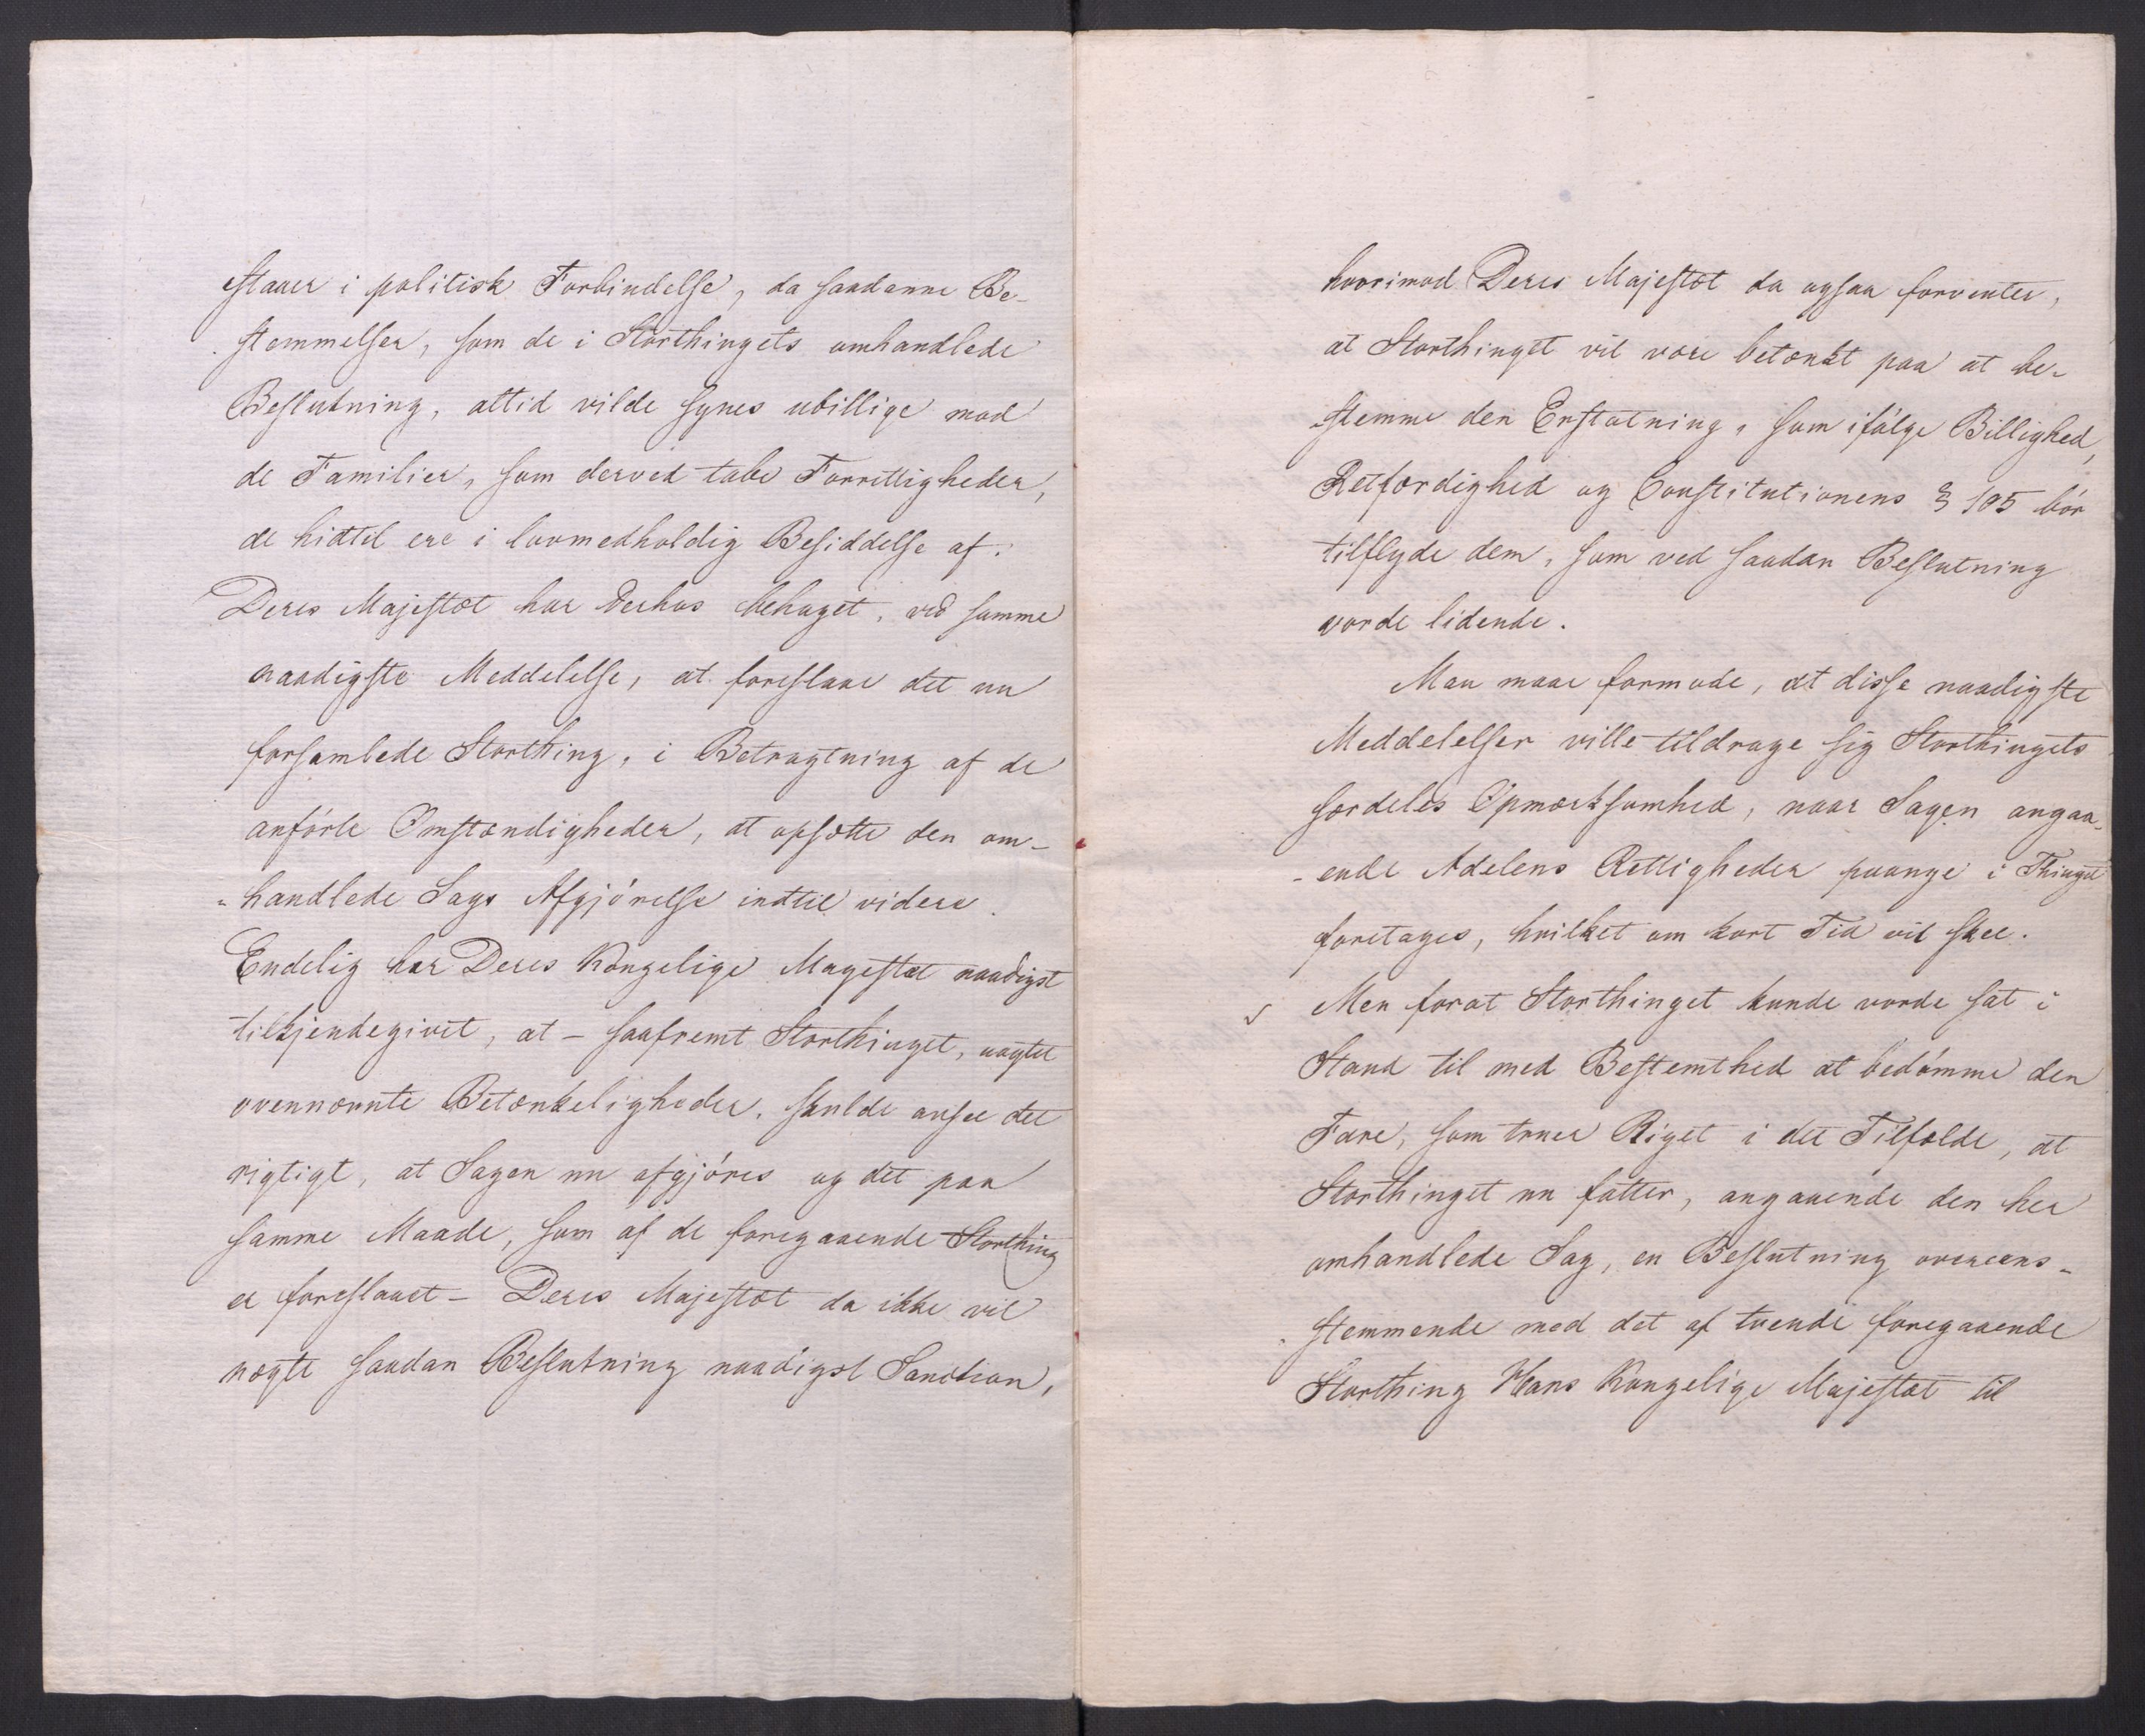 staaer i politisk Forbindelse, da saadanne Be-
stemmelser, som de i Storthingets omhandlede
Beslutning, altid vilde synes ubillige mod
de Familier, som derved tabe Forrettigheder,
de hidtil ere i lovmedholdig Besiddelse af.
Deres Majestæt har derhos behaget, ved samme
naadigste Meddelelse, at foreslaae det nu
forsamlede Storthing, i Betragtning af de
anförte Omstændigheder, at opsætte den om-
handlede Sags Afgjörelse indtil videre.
Endelig har Deres Kongelige Magestæt naadigst
tilkjendegivet, at - saafremt Storthinget, uagtet
ovennævnte Betænkeligheder, skulde ansee det
rigtigt, at Sagen nu afgjöres og det paa
samme Maade, som af de foregaaende Storthing
er foreslaaet - Deres Majestæt da ikke vil
nægte saadan Beslutning naadigst Sanction,
hvorimod Deres Majestæt da ogsaa forventer,
at Storthinget vil være betænkt paa at be-
stemme den Erstatning, som ifölge Billighed,
Retfærdighed og Constitutionens § 105 bör
tilflyde dem, som ved saadan Beslutning
vorde lidende.
Man maae formode, at disse naadigste
Meddelelser ville tildrage sig Storthingets
særdeles Opmærksomhed, naar Sagen angaa-
ende Adelens Rettigheder paanye i Thinget
foretages, hvilket om kort Tid vil skee.
Men forat Storthinget kunde vorde sat i
Stand til med Bestemthed at bedömme den
Fare, som truer Riget i det Tilfælde, at
Storthinget nu fatter, angaaende den her
omhandlede Sag, en Beslutning overeens-
stemmende med det af tvende foregaaende
Storthing Hans Kongelige Majestæt til